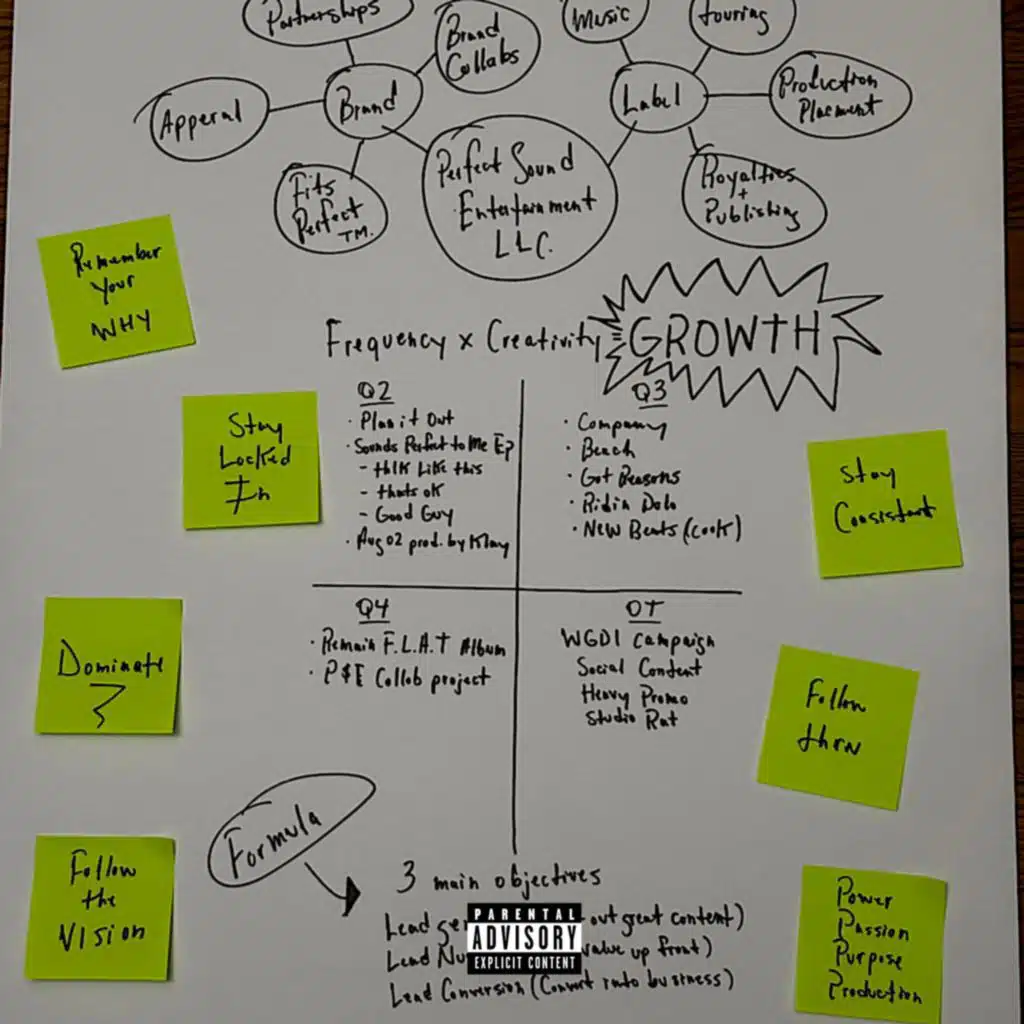 Partnerships
Brand
Collabs
Apperal
Brand
Fits
Perfect
TM.
Perfect Sound
Entertainment
LLC.
Music
touring
Label
Production
Placment
Royalties
+
Publishing
Remember
Your
WHY
Frequency x Creativity
GROWTH
Stay
Locked
In
Q2
· Plan it Out
· Sounds Perfect to Me EP
- thlk Like this
- thats ok
- Good Guy
· Aug 02 prod. by Klay
Q3
· Company
· Bench
· Got Reasons
· Ridin Dolo
· New Beats (cook)
Stay
Consistant
Dominate
Q4
· Remain F.L.A.T Album
· P$E Collab project
OT
WGDI Campaign
Social Content
Heavy Promo
Studio Rat
Follow
thru
Formula
3 main objectives
Lead out great content)
Lead value up front)
Lead Conversion (Convert into business)
PARENTAL
ADVISORY
EXPLICIT CONTENT
Follow
the
VISION
Power
Passion
Purpose
Production